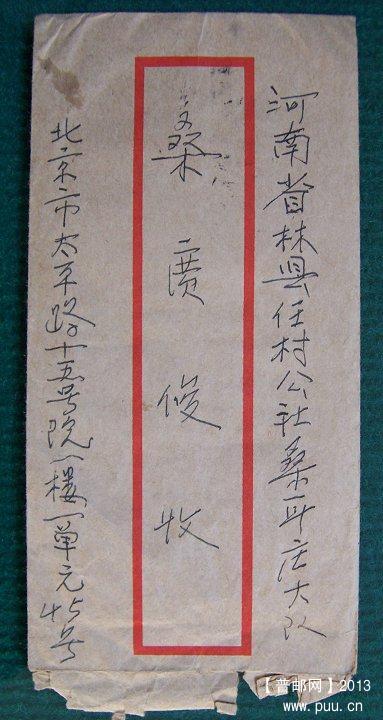 河南省林县任村公社桑耳庄大队
桑廣俊收
北京市太平路十五号院八楼一单元45号
【普邮网】2013
www.puu.cn